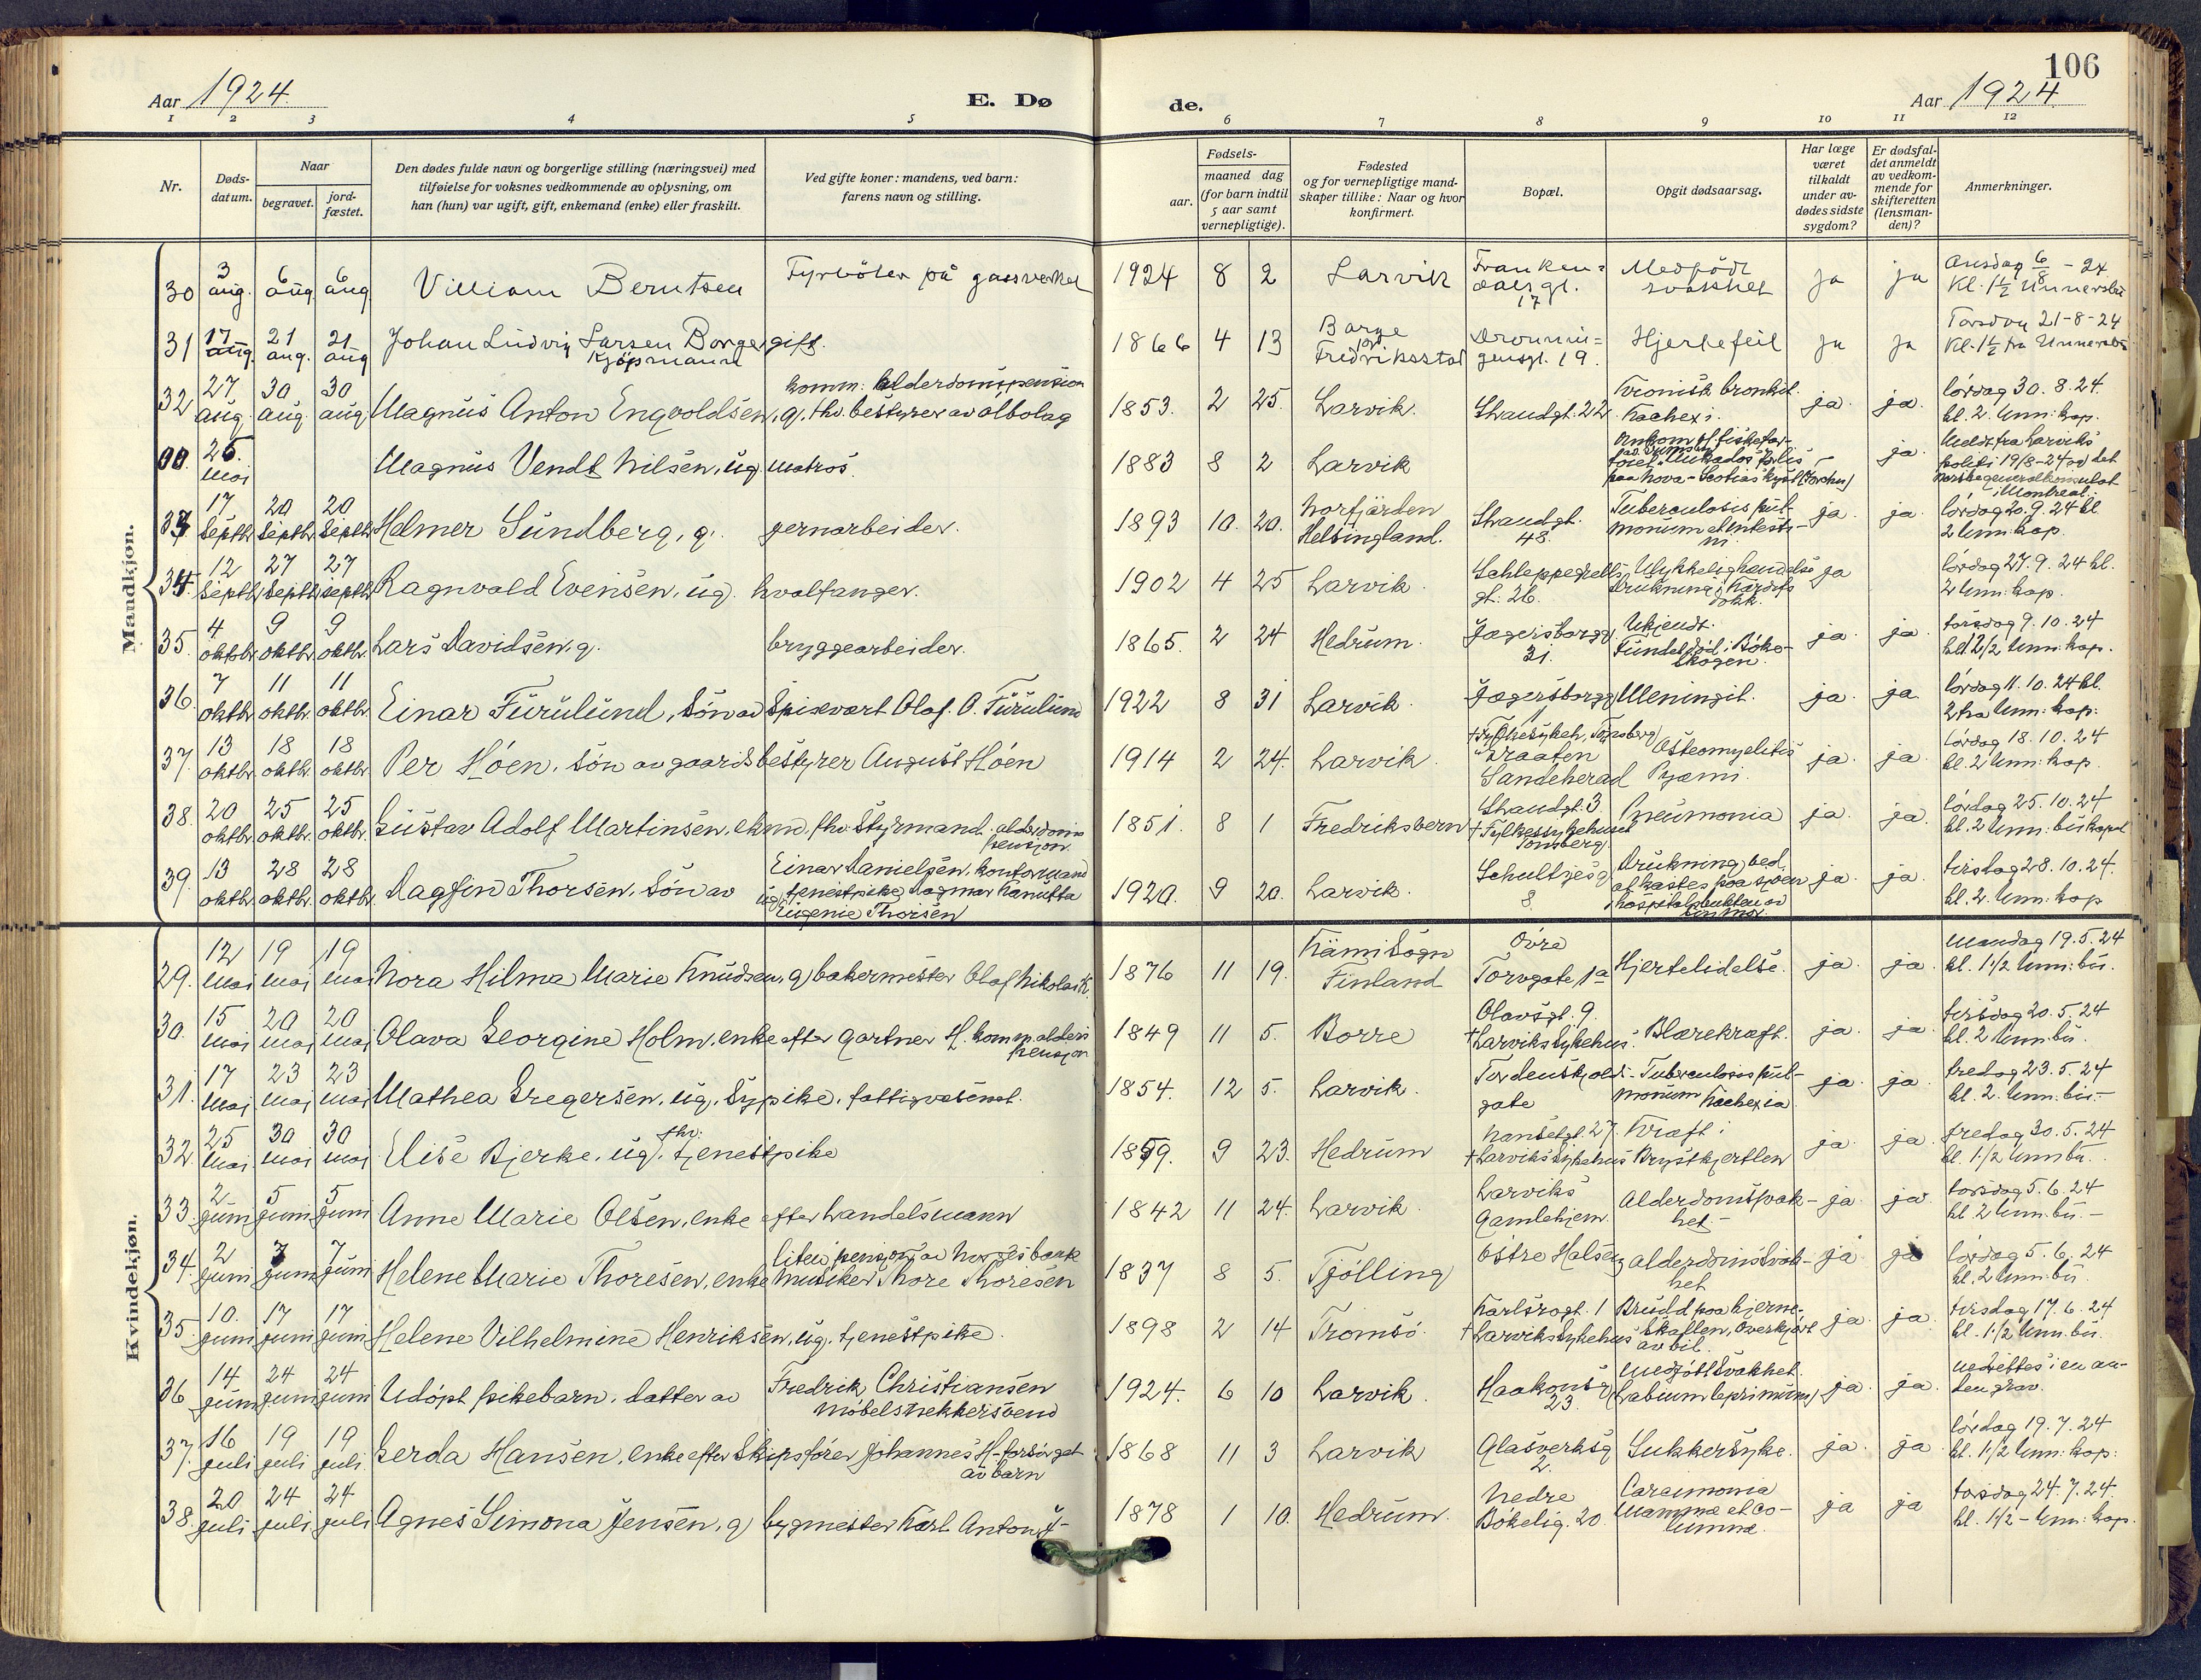 106
Aar 1924.
E. Dø
de.
Aar 1924
1 2 3 4 5 6 7 8 9 10 11 12
Nr.
Døds-
datum.
Naar
begravet.
jord-
fæstet.
Den dødes fulde navn og borgerlige stilling (næringsvei) med
tilføielse for voksnes vedkommende av oplysning, om
han (hun) var ugift, gift, enkemand (enke) eller fraskilt.
Ved gifte koner: mandens, ved barn:
farens navn og stilling.
Fødsels-
aar. maaned dag
(for barn indtil
5 aar samt
vernepligtige).
Fødested
og for vernepligtige mand-
skaper tillike: Naar og hvor
konfirmert.
Bopæl.
Opgit dødsaarsag.
Har læge
været
tilkaldt
under av-
dødes sidste
sygdom?
Er dødsfal-
det anmeldt
av vedkom-
mende for
skifteretten
(lensman-
den)?
Anmerkninger.
Mandkjøn.
30 3 aug. 6 aug. 6 aug. Villiam Berntsen Fyrböter på gassverket 1924 8 2 Larvik Franken=
dalsgt.
17 Medfödt
svakhet ja ja Onsdag 6/8 - 24
Kl. 1½
31 17 aug. 21 aug. 21 aug Johan Ludvig Larsen Borge, gift.
Kjöpmann 1866 4 13 Borge
Fredriksstad Dronnin=
gensgt. 19. Hjertefeil ja ja Torsdag 21-8-24
Kl. 1½ fra
32 27 aug. 30 aug. 30 aug. Magnus Anton Engvoldsen, g. fhv. bestyrer av ölbolag
komm: alderdomspension 1853. 2 25. Larvik. Strandgt. 22. Kronisk bronkit.
Kachexi. ja. ja. lördag 30. 8. 24.
kl. 2. Unn: kap.
26. mai Magnus Vendt Nilsen, ug. matros. 1883 8 2 Larvik Ankom
paa Nova-Scotias kyst ja. Meldt fra Larviks
politi 19/8-24 av det
norske generalkonsulat
i Montreal.
33 17 Septbr. 20 Septbr. 20 Septbr. Helmer Sundberg, g. jernarbeider. 1893 10. 20. Norfjärden
Helsingland. Strandgt.
48. Tuberculosis pul-
monum et intesti-
ni ja. ja. lördag 20. 9. 24 kl
2 Unn: kap.
34. 12 Septbr. 27 Septbr. 27 septbr. Ragnvald Evensen, ug. hvalfanger. 1902 4 25 Larvik. Schleppegrells
gt. 26. Ulykkelig hændelse
Drukning i Kardifs
dokk. ja lördag 27. 9. 24 kl.
2 Unn: kap.
35. 4 oktobr. 9 oktbr. 9 oktbr. Lars Davidsen, g. bryggearbeider. 1865. 2 24 Hedrum. Jægersborgg.
31. Ukjendt.
Funnet död i Böke-
skogen. ja. ja. torsdag 9. 10. 24
kl. 2½ Unn: kap.
36. 7 oktbr. 11 oktbr. 11 oktbr. Einar Furulund, Sön av Spisevert Olaf. O. Furulund 1922 8 31 Larvik. Jægersborgg Meningit. ja. ja. lördag 11. 10. 24 kl.
2 fra Unn: kap:
37. 13 oktbr. 18 oktbr. 18 oktbr. Per Höen, Sön av gaardsbestyrer August Höen 1914 2 24. Larvik. +Fylkesykeh, Tönsberg
"Braaten"
Sandeherad Osteomyelitis
Pyæmi. ja. ja. lördag 18. 10. 24
kl. 2. Unn: kap.
38. 20 oktbr. 25 oktbr. 25 oktbr. Gustav Adolf Martinsen, ekm, fhv. Styrmand. alderdoms
pension. 1851. 8 1 Fredriksvern Strandgt. 3.
+Fylkessykehuset
Tönsberg. Pneumonia ja ja. lördag 25. 10. 24
kl. 2 Unn: bis kapel
39. 13 oktbr. 28 oktbr. 28 oktbr. Dagfin Thorsen, Sön av Einar Danielsen, kontormand
ug. tjenestpike Dagmar Kanutta
Eugenie Thorsen 1920. 9 20. Larvik. Schultzesg
8. Drukning ved
at kastes paa sjöen
i hospitalsbukten av
sin mor. ja. ja. tirsdag 28. 10. 24.
kl. 2. Unn: kap
Kvindekjøn.
29. 12 mai 19 mai 19 mai Nora Hilma Marie Knudsen, g) bakermester Olaf Nikolai K. 1876 11 19. Kämi Sogn
Finland Övre
Torvgate 1a Hjertelidelse. ja. ja. Mandag 19. 5. 24
kl. 1½ Unn: bis.
30. 15 mai 20 mai 20 mai Olava Georgine Holm, enke efter gartner H. komm. alders
pension 1849 11 5. Borre Olavsgt. 9.
+Larviks sykehus. Blærekræft. ja. ja tirsdag 20. 5. 24
kl. 2 Unn. bis.
31. 17 mai 23 mai 23 mai Mathea Gregersen, ug. Sypike, fattigvæsenet. 1854. 12 5. Larvik. Tordenskjold-
gate Tuberculosis pul-
monum Kachexia ja ja. fredag 23. 5. 24
kl. 2. Unn. bis.-
32. 25 mai 30 mai 30 mai Elise Bjerke, ug. fhv. tjenestpike 1859. 9 23. Hedrum Nansetgt. 27.
+Larviks Sykehus Kræft i
Brystkjertlen ja. ja. fredag 30. 5. 24
kl. 1½ Unn bis.
33. 2 juni 5 juni 5 juni Anne Marie Olsen, enke efter Handelsmann 1842 11 24. Larvik. Larviks
Gamlehjem Alderdomssvak-
het.- ja. ja torsdag 5. 6. 24
kl. 2 Unn. bis.-
34. 2 juni 7 juni 7 juni Helene Marie Thoresen, enke musiker Thore Thoresen
liten pension av Norges bank 1837 8 5. Tjölling Östre Halsen alderdomssvak-
het ja ja lördag 5. 6. 24
kl. 2 Unn: bis.
35. 10. juni 17 juni 17 juni Helene Vilhelmine Henriksen, ug. tjenestpike. 1898 2 14 Tromsö. Karlsrogt. 1
+Larviks sykehus Brudd paa hjerne-
skallen, Overkjört
av bil. ja. ja. tirsdag 17. 6. 24
kl. 1½ Unn. bis.
36 14 juni 24 juni 24 juni Udöpt pikebarn, datter av Fredrik Christiansen
Möbelsnekkersvend 1924. 6 10 Larvik. Haakonsg
23. Medfött Svakhet
(Labium leporinum) ja. ja. nedsettes i en an-
den grav.
37. 16 juli 19 juli 19 juli. Gerda Hansen, enke efter Skipsförer Johannes H- forsörget
av barn 1868 11 3 Larvik Glasverksg
2. Sukkersyke. ja. ja lördag 19. 7. 24
kl. 1½ Unn: kap:
38. 20 juli 24 juli 24 juli Agnes Simona Jensen, g) bygmester Karl Anton J- 1878 1 10. Hedrum. Nedre
Bökelig. 20 Carcinomia
Mammæ et co-
lumnæ. ja ja torsdag 24. 7. 24.
kl. 1½ - Unn: kap.